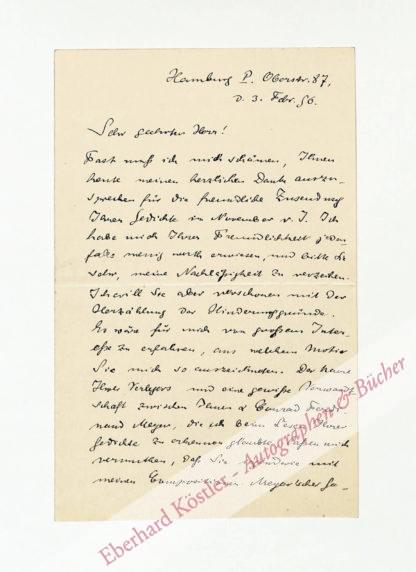 Hamburg P. Oberstr. 87,
d. 3. Febr. 96.
Sehr geehrter Herr!
Fast muß ich mich schämen, Ihnen
heute meinen herzlichen Dank auszu-
sprechen für die freundliche Zusendung
Ihrer Gedichte im November v. J. Ich
habe mich Ihrer Freundlichkeit jeden-
falls wenig werth erwiesen, und bitte Sie
sehr, meine Nachlässigkeit zu verzeihen.
Ich will Sie aber verschonen mit der
Herzählung der Hinderungsgründe.
Es wäre für mich von großem Inter-
esse zu erfahren, aus welchem Motiv
Sie mich so auszeichneten. Der Name
Ihres Verlegers und eine gewisse Verwandt-
schaft zwischen Ihnen & Conrad Ferdi-
nand Meyer, die ich beim Lesen Ihrer
Gedichte zu erkennen glaubte, lassen mich
vermuthen, daß Sie irgendwie mit
meinen Compositionen Meyer'scher Ge-
Eberhard Köstler - Autographen & Bücher